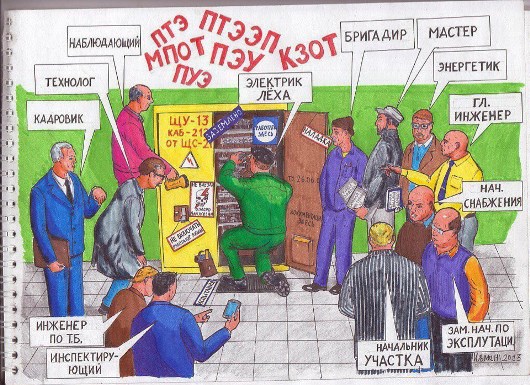 ПТЭ
ПТЭЭП
МПОТ
ПЭУ
КЗОТ
ПУЭ
НАБЛЮДАЮЩИЙ
ТЕХНОЛОГ
КАДРОВИК
ЭЛЕКТРИК
ЛЁХА
БРИГАДИР
МАСТЕР
ЭНЕРГЕТИК
ГЛ.
ИНЖЕНЕР
НАЧ.
СНАБЖЕНИЯ
ЩУ-13
КАБ-21
ОТ ЩС-2
ЗАЗЕМЛЕНО
РАБОТАТЬ
ЗДЕСЬ
НЕ ВЛЕЗАЙ
НЕ ВКЛЮЧАТЬ
ИНЖЕНЕР
ПО ТБ.
ИНСПЕКТИРУ-
ЮЩИЙ
НАЧАЛЬНИК
УЧАСТКА
ЗАМ. НАЧ. ПО
ЭКСПЛУТАЦИ